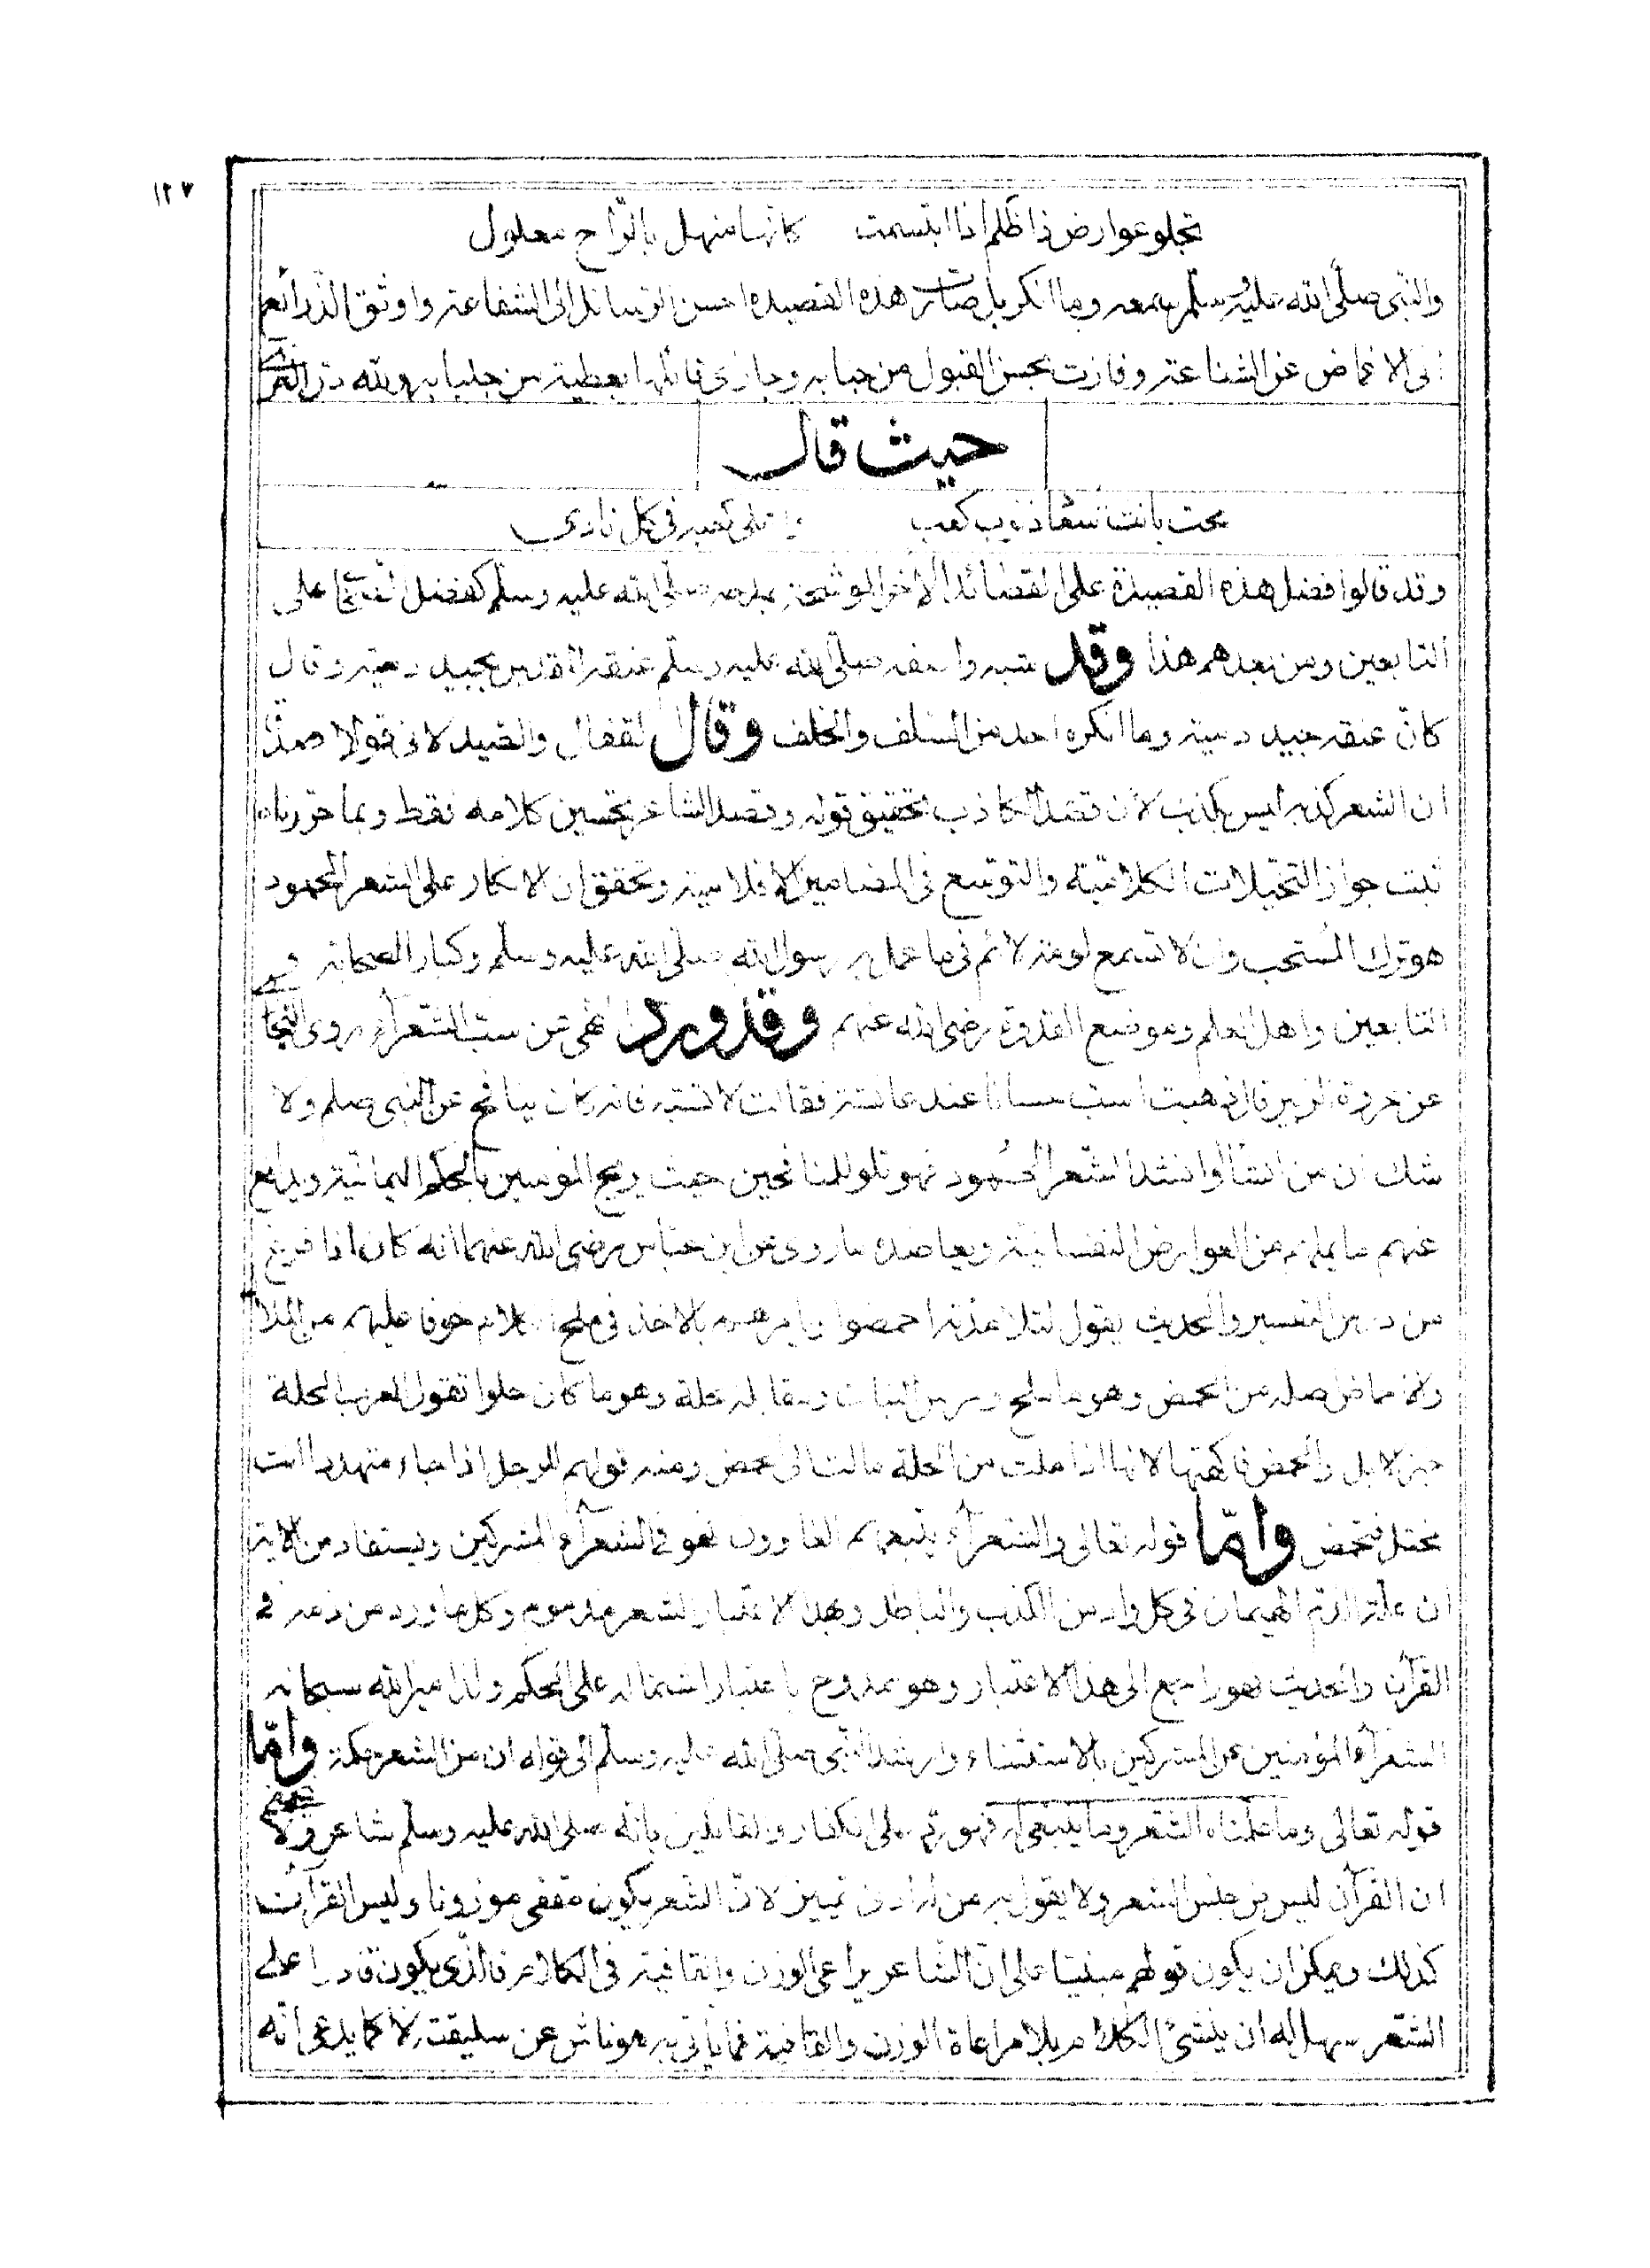 ١٢٧
تجلو عوارض ذا ظلم اذا ابتسمت كانها منهل بالرّاح معلول
والنبى صلّى الله عليه وسلّم يسمعه وما انكر بل صارت هذه القصيدة احسن الوسائل الى الشفاعة واوثق الذرائع
الى الاغماض عن الشناعة وفازت بحسن القبول من جنابه وجازى قائلها بعطية من جلبابه ولله در
حيث قال
محت بانت سعاد ذنوب كعب فى كل نادى
وقد قالوا فضل هذه القصيدة على القصائد الأخر الموشحة بمدحه صلّى الله عليه وسلّم كفضل على
التابعين ومن بعدهم هذا وقد شبه واصفه صلّى الله عليه وسلّم عنقه الاقدس بجيد دمية وقال
كانّ عنقه جيد دمية وما انكره احد من السّلف والخلف وقال القفال والصيدلانى
ان الشعر كذبه ليس بكذب لأن قصد الكاذب تحقيق قوله وقصد الشاعر تحسين كلامه فقط وبما حررناه
ثبت جواز التخيلات الكلاميّة والتوسّع فى المضامين وتحقق ان الانكار على الشعر المحمود
هو ترك المستحب وان لا تسمع لومة لائم فى ما عمل به رسول الله صلّى الله عليه وسلّم وكبار الصحابة و
التابعين واهل العلم وموضع القدوة رضى الله عنهم وقد ورد النهى عن سبّ الشعرآء روى
عن عروة الزبير قال ذهبت اسب حسانا عند عائشة فقالت لا تسبه فانه كان ينافح عن النبى صلعم ولا
شك ان من انشأ او انشد الشعر المحمود فهو تلو للمنافحين حيث المؤمنين بالحكم اليمانية ويدافع
عنهم ما يملهم من العوارض النفسانية ويعاضده ما روى عن ابن عبّاس رضى الله عنهما انه كان اذا فرغ
من درس التفسير والحديث يقول لتلامذته احمضوا ويامرهم بالاخذ فى ملح الكلام خوفا عليهم من الملا
والاحماض اصله من الحمض وهو ما ملح ومر من النبات ومقابله خلة وهو ما كان حلوا تقول العرب الخلة
خبز الابل والحمض فاكهتها لانها اذا ملت من الخلة مالت الى الحمض ومنه قولهم للرجل اذا جاء متهددا انت
مختل فتحمض وامّا قوله تعالى والشعرآء يتبعهم الغاوون فهو فى الشعرآء المشركين ويستفاد من الاية
ان علة الذم الهيمان فى كل واد من الكذب والباطل وبهذا الاعتبار الشعر مذموم وكل ما ورد من ذمه فى
القرآن والحديث فهو راجع الى هذا الاعتبار وهو ممدوح باعتبار اشتماله على الحكم ولذا ميز الله سبحانه
الشعرآء المؤمنين عن المشركين بالاستثناء وارشد النّبى صلّى الله عليه وسلم الى قوله ان من الشعر حكمة وامّا
قوله تعالى وما علمناه الشعر وما ينبغى له فهو رد على الكفار والقائلين بانّه صلّى الله عليه وسلّم شاعر ولا
ان القرآن ليس من جنس الشعر ولا يقول به من له ادنى تمييز لانّ الشعر يكون مقفى موزونا وليس القرآن
كذلك ويمكن ان يكون قولهم مبنيا على انّ الشاعر يراعى الوزن والقافية فى الكلام فالّذى يكون قادرا على
الشعر سهل له ان ينشئ الكلام بلا مراعاة الوزن والقافية فما يأتى به هو ناش عن سليقته لا كما يدعى انّه